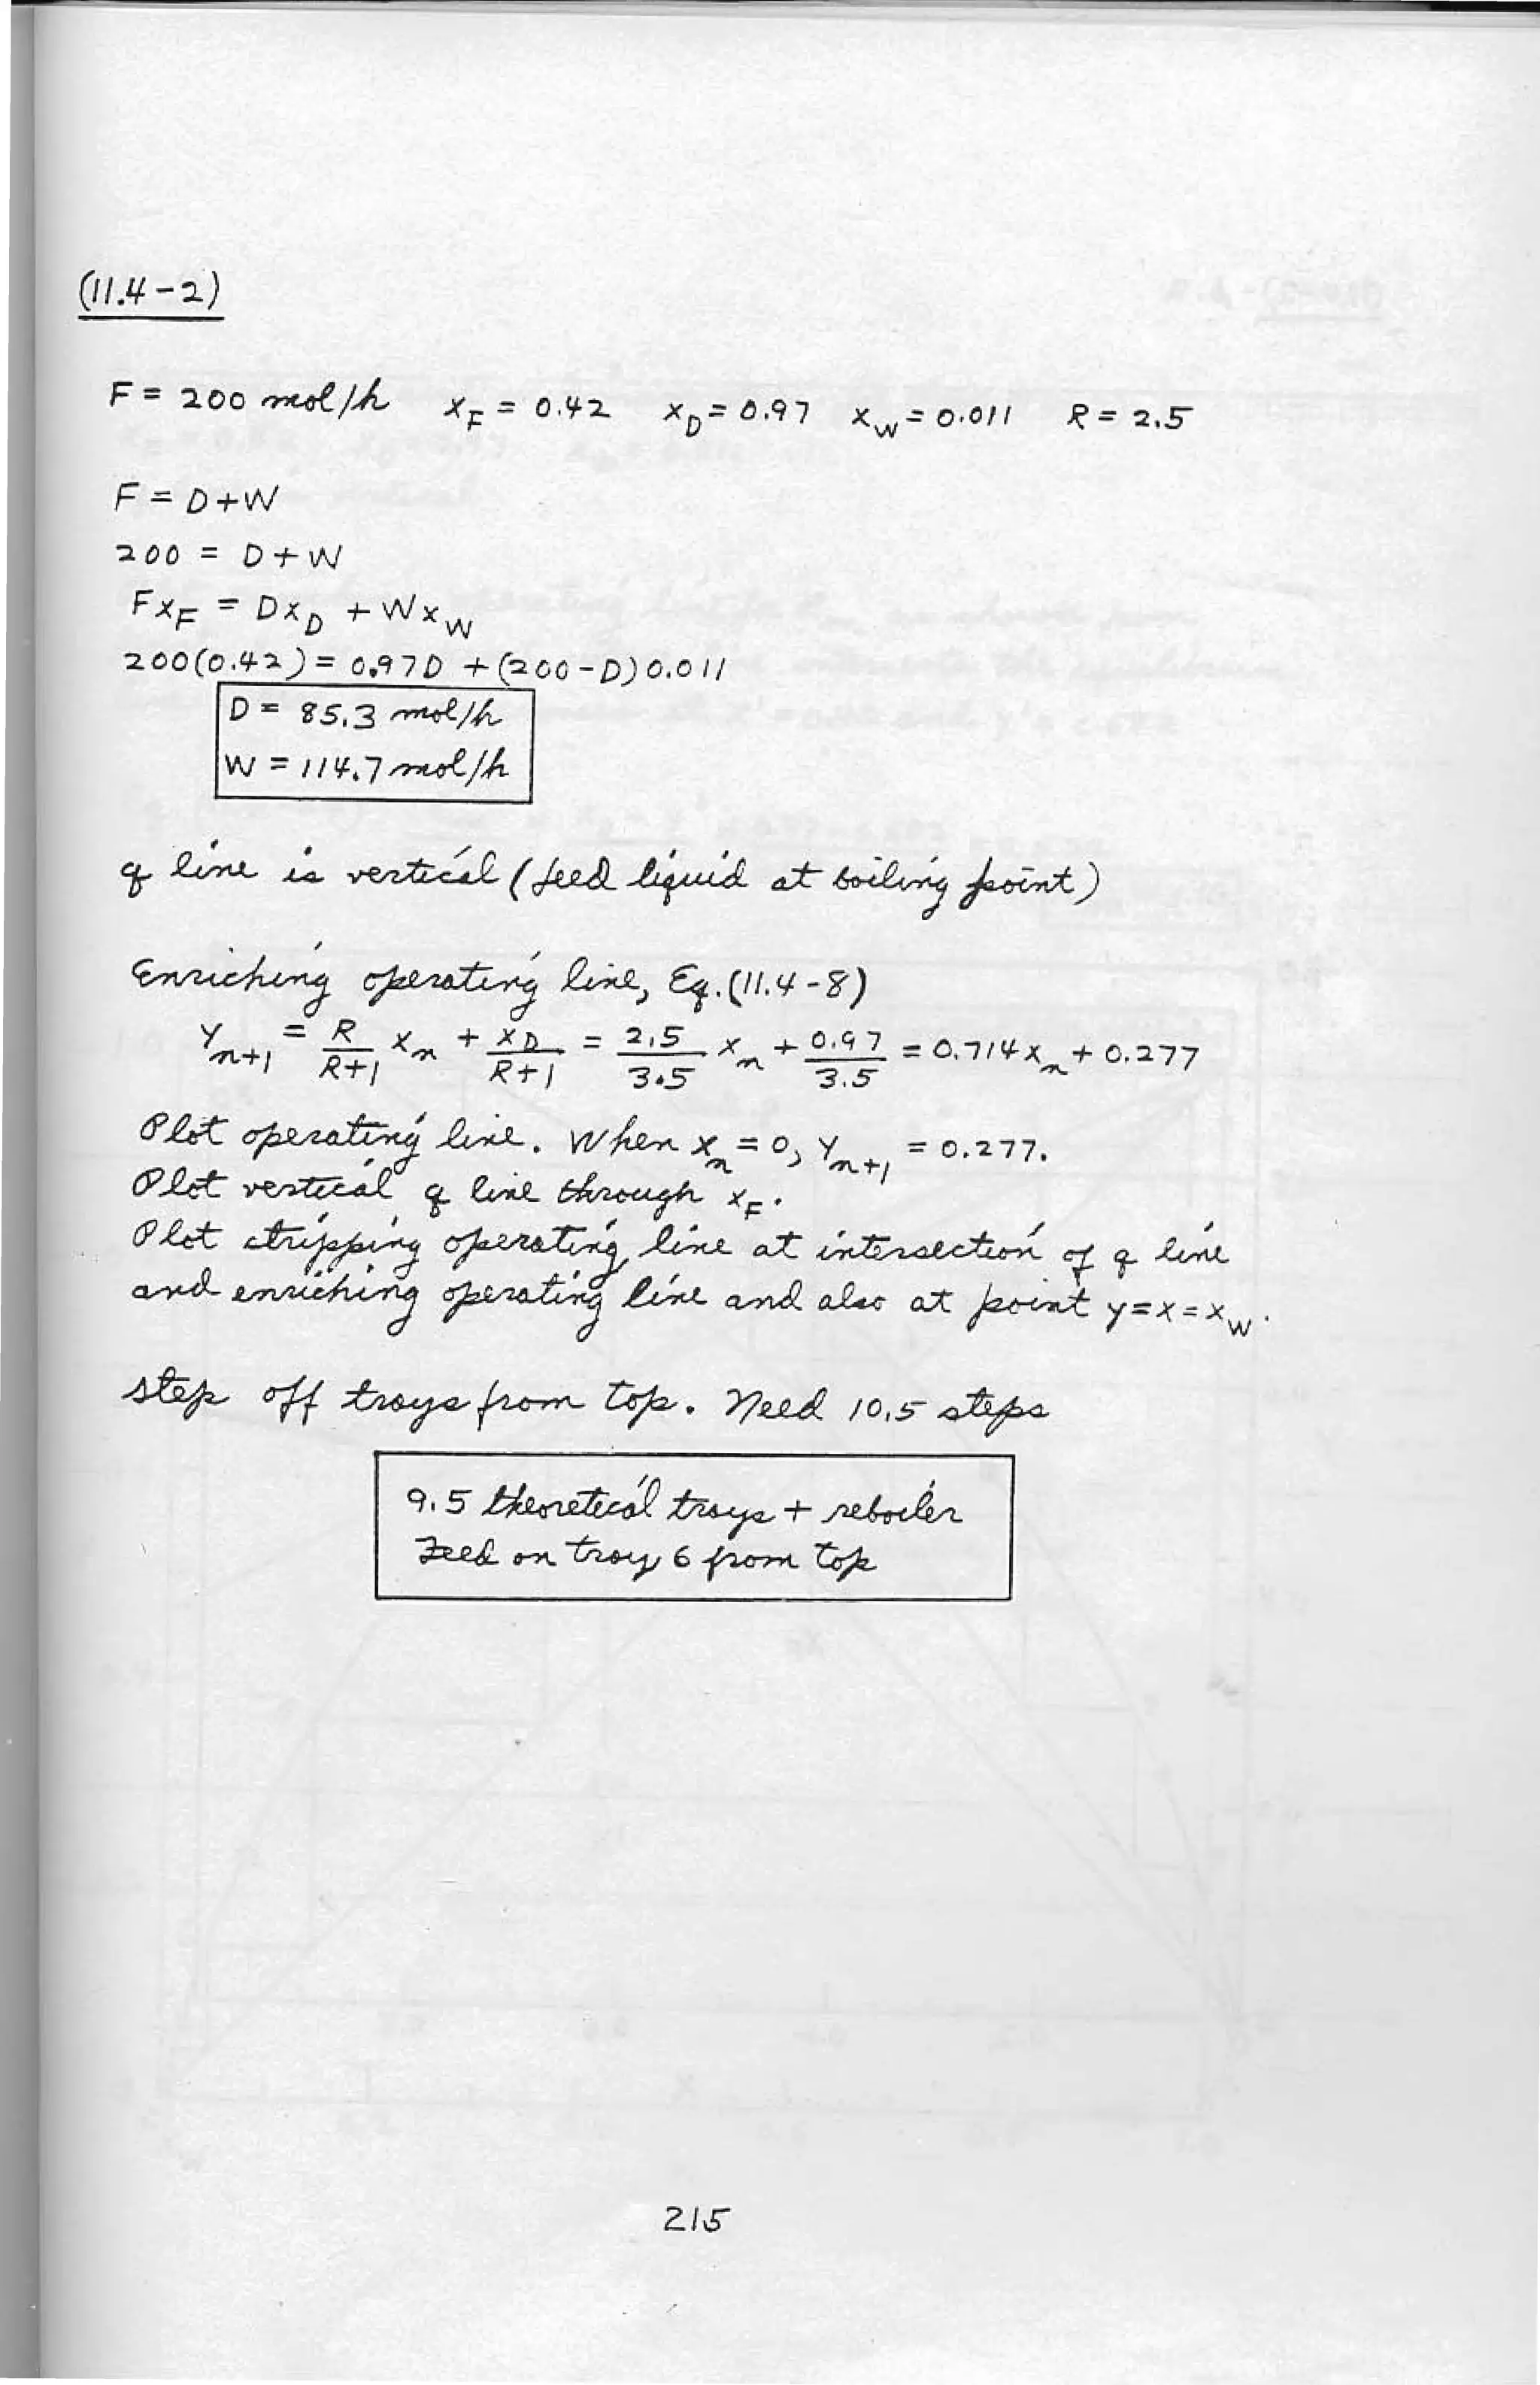 (11.4-2)
F = 200 mol/h x_F = 0.42 x_D = 0.97 x_W = 0.011 R = 2.5
F = D+W
200 = D+W
Fx_F = Dx_D + Wx_W
200(0.42) = 0.97D + (200-D)0.011
D = 85.3 mol/h
W = 114.7 mol/h
q line is vertical (feed liquid at boiling point)
Enriching operating line, Eq.(11.4-8)
y_n+1 = R/R+1 x_n + x_D/R+1 = 2.5/3.5 x_n + 0.97/3.5 = 0.714x_n + 0.277
Plot operating line. When x_n = 0, y_n+1 = 0.277.
Plot vertical q line through x_F.
Plot stripping operating line at intersection of q line
and enriching operating line and also at point y=x=x_W.
Step off trays from top. Need 10.5 steps
9.5 theoretical trays + reboiler
Feed on tray 6 from top
215